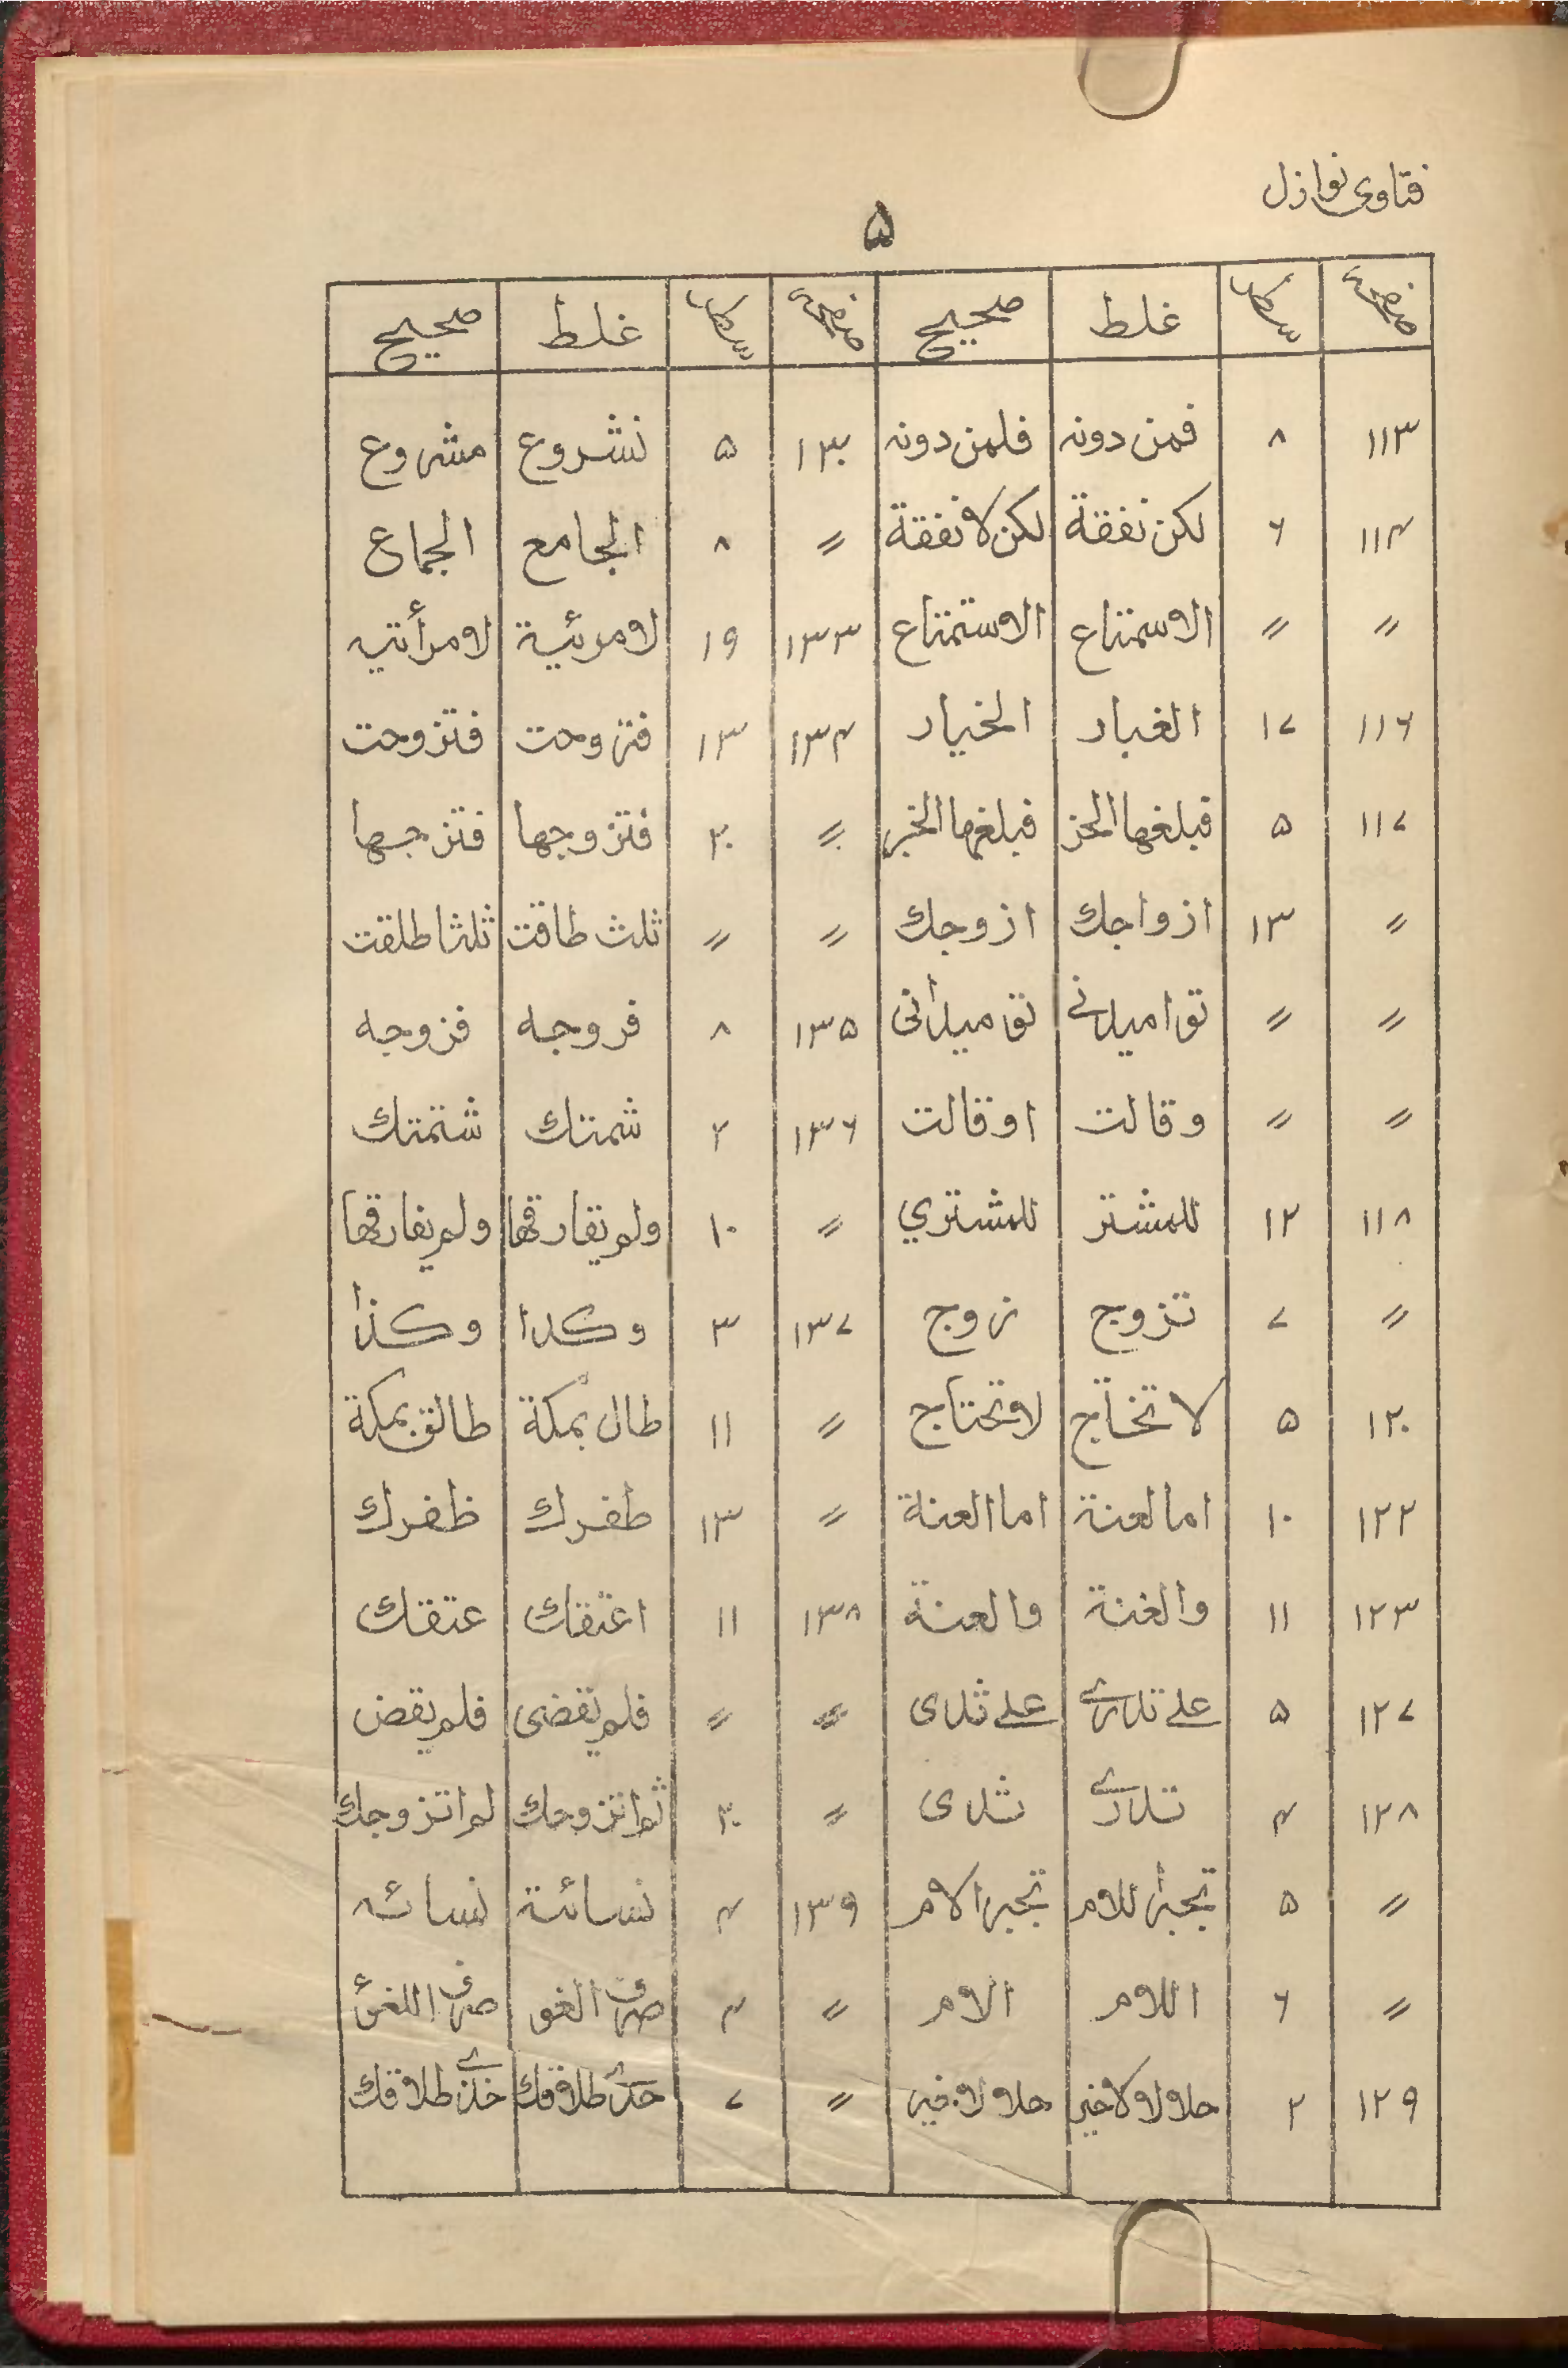 فتاوى نوازل
۵
صفحه سطر غلط صحيح صفحه سطر غلط صحيح
۱۱۳ ۸ فمن دونه فلمن دونه ۱۳۰ ۵ نشروع مشروع
۱۱۴ ۶ لكن نفقة لكن لا نفقة 〃 ۸ الجامع الجماع
〃 〃 الاسمتاع الاستمتاع ۱۳۳ ۱۹ لامرئية لامرأتيه
۱۱۶ ۱۷ الغبار الخيار ۱۳۴ ۱۳ فتزوحت فتزوجت
۱۱۷ ۵ فبلغها الحز فبلغها الخبر 〃 ۲۰ فتزوجها فتزجها
〃 ۱۳ ازواجك ازوجك 〃 〃 ثلث طاقت ثلثا طلقت
〃 〃 ۱۳۵ ۸ فروجه فزوجه
〃 〃 وقالت اوقالت ۱۳۶ ۲ شمتك شتمتك
۱۱۸ ۱۲ للمشتر للمشتري 〃 ۱۰ ولم تفارقها ولم يفارقها
〃 ۷ تزوج زوج ۱۳۷ ۳ وكدا وكذا
۱۲۰ ۵ لا تخاج لا تحتاج 〃 ۱۱ طال بمكة طالق بمكة
۱۲۲ ۱۰ امالعنة اما العنة 〃 ۱۳ طفرك ظفرك
۱۲۳ ۱۱ والغنة والعنة ۱۳۸ ۱۱ اعتقك عتقك
۱۲۷ ۵ على ثدى 〃 〃 فلم يقضى فلم يقض
۱۲۸ ۴ ثدى 〃 ۲۰ ثم اتزوجك لم اتزوجك
〃 ۵ تجبر اللام تجبر الام ۱۳۹ ۴ نسائة نسائه
〃 ۶ اللام الام 〃 ۴ صرف الغو صرف اللغو
۱۲۹ ۲ 〃 ۷ حدى طلاقك خذى طلاقك